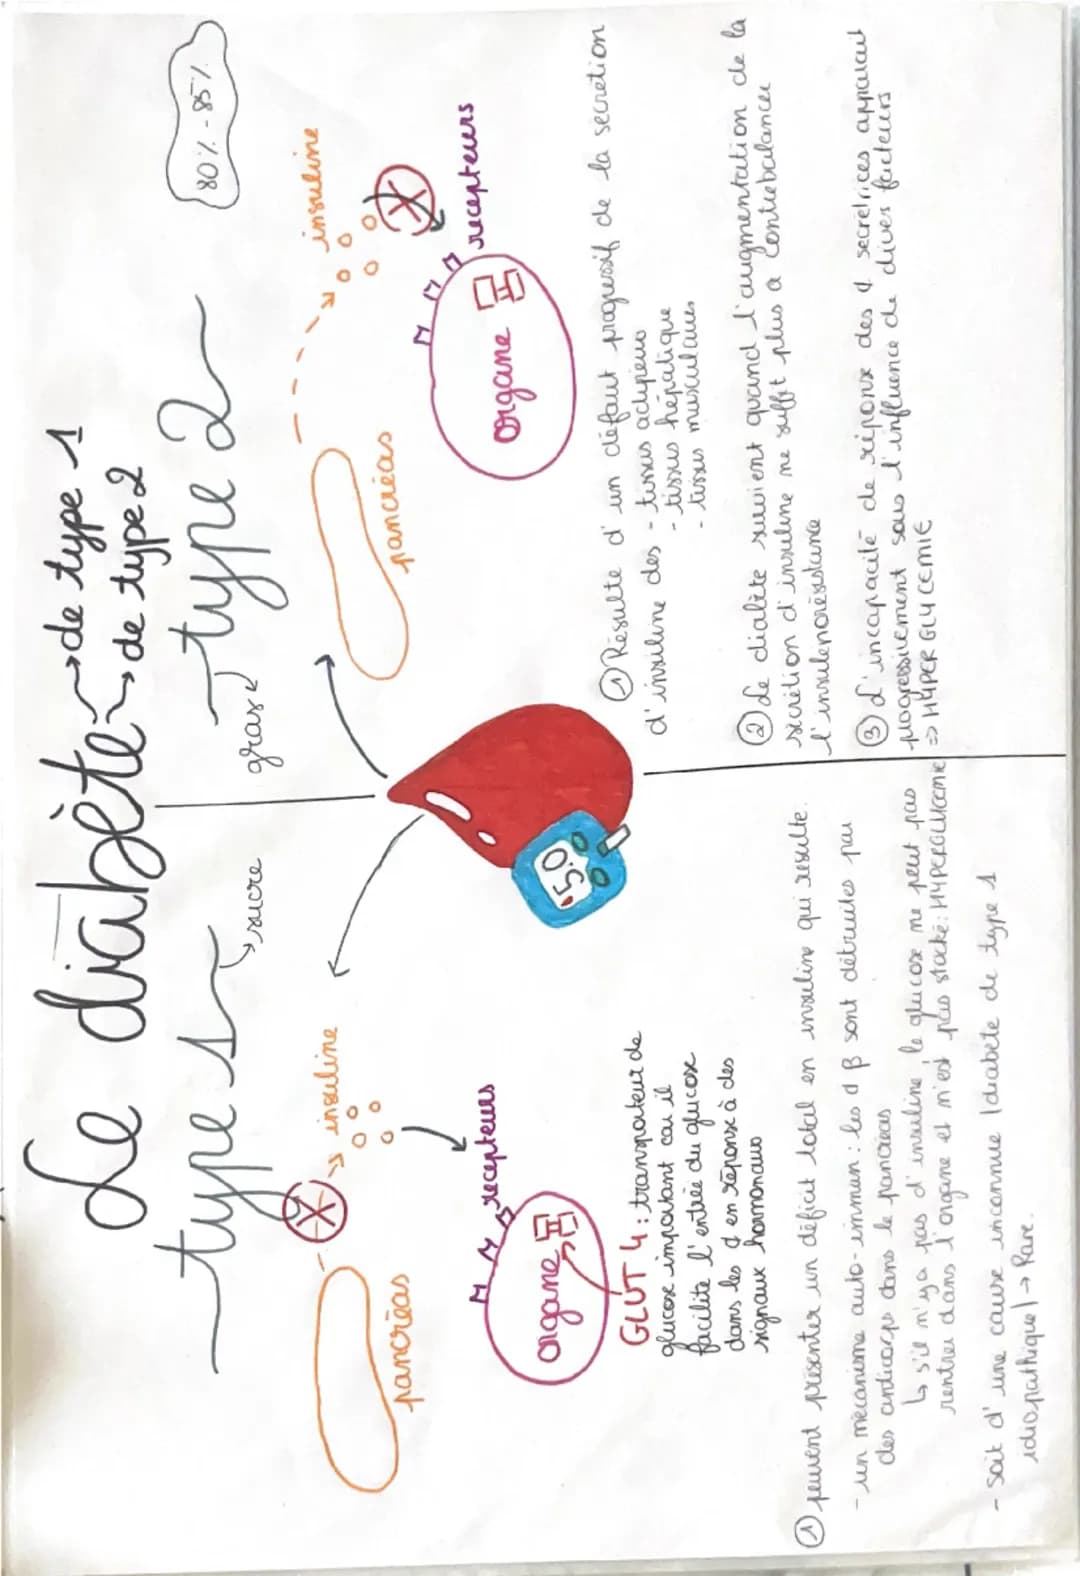 Le diabète → de type 1
→ de type 2
type 1
→ sucre
pancréas
insuline
recepteurs
organe
GLUT 4 : transporteur de
glucose important car il
facilite l'entrée du glucose
dans les ¢ en réponse à des
signaux hormonaux
① peuvent présenter un déficit total en insuline qui résulte.
- un mécanisme auto-immun : les ¢ β sont détruites par
des anticorps dans le pancréas
↳ s'il n'y a pas d'insuline, le glucose ne peut pas
rentrer dans l'organe et n'est pas stocké : HYPERGLYCEMIE
- Soit d'une cause inconnue (diabète de type 1
idiopathique) → Rare.
type 2
gras
80% - 85%
pancréas
insuline
recepteurs
organe
① Résulte d'un défaut progressif de la secretion
d'insuline des - tissus adipeux
- tissus hépatique
- tissus musculaires
② Le diabète survient quand l'augmentation de la
sécrétion d'insuline ne suffit plus à contrebalancer
l'insulinorésistance
③ L'incapacité de réponse des ¢ secretrices apparait
progressivement sous l'influence de divers facteurs
⇒ HYPERGLYCEMIE
5.0